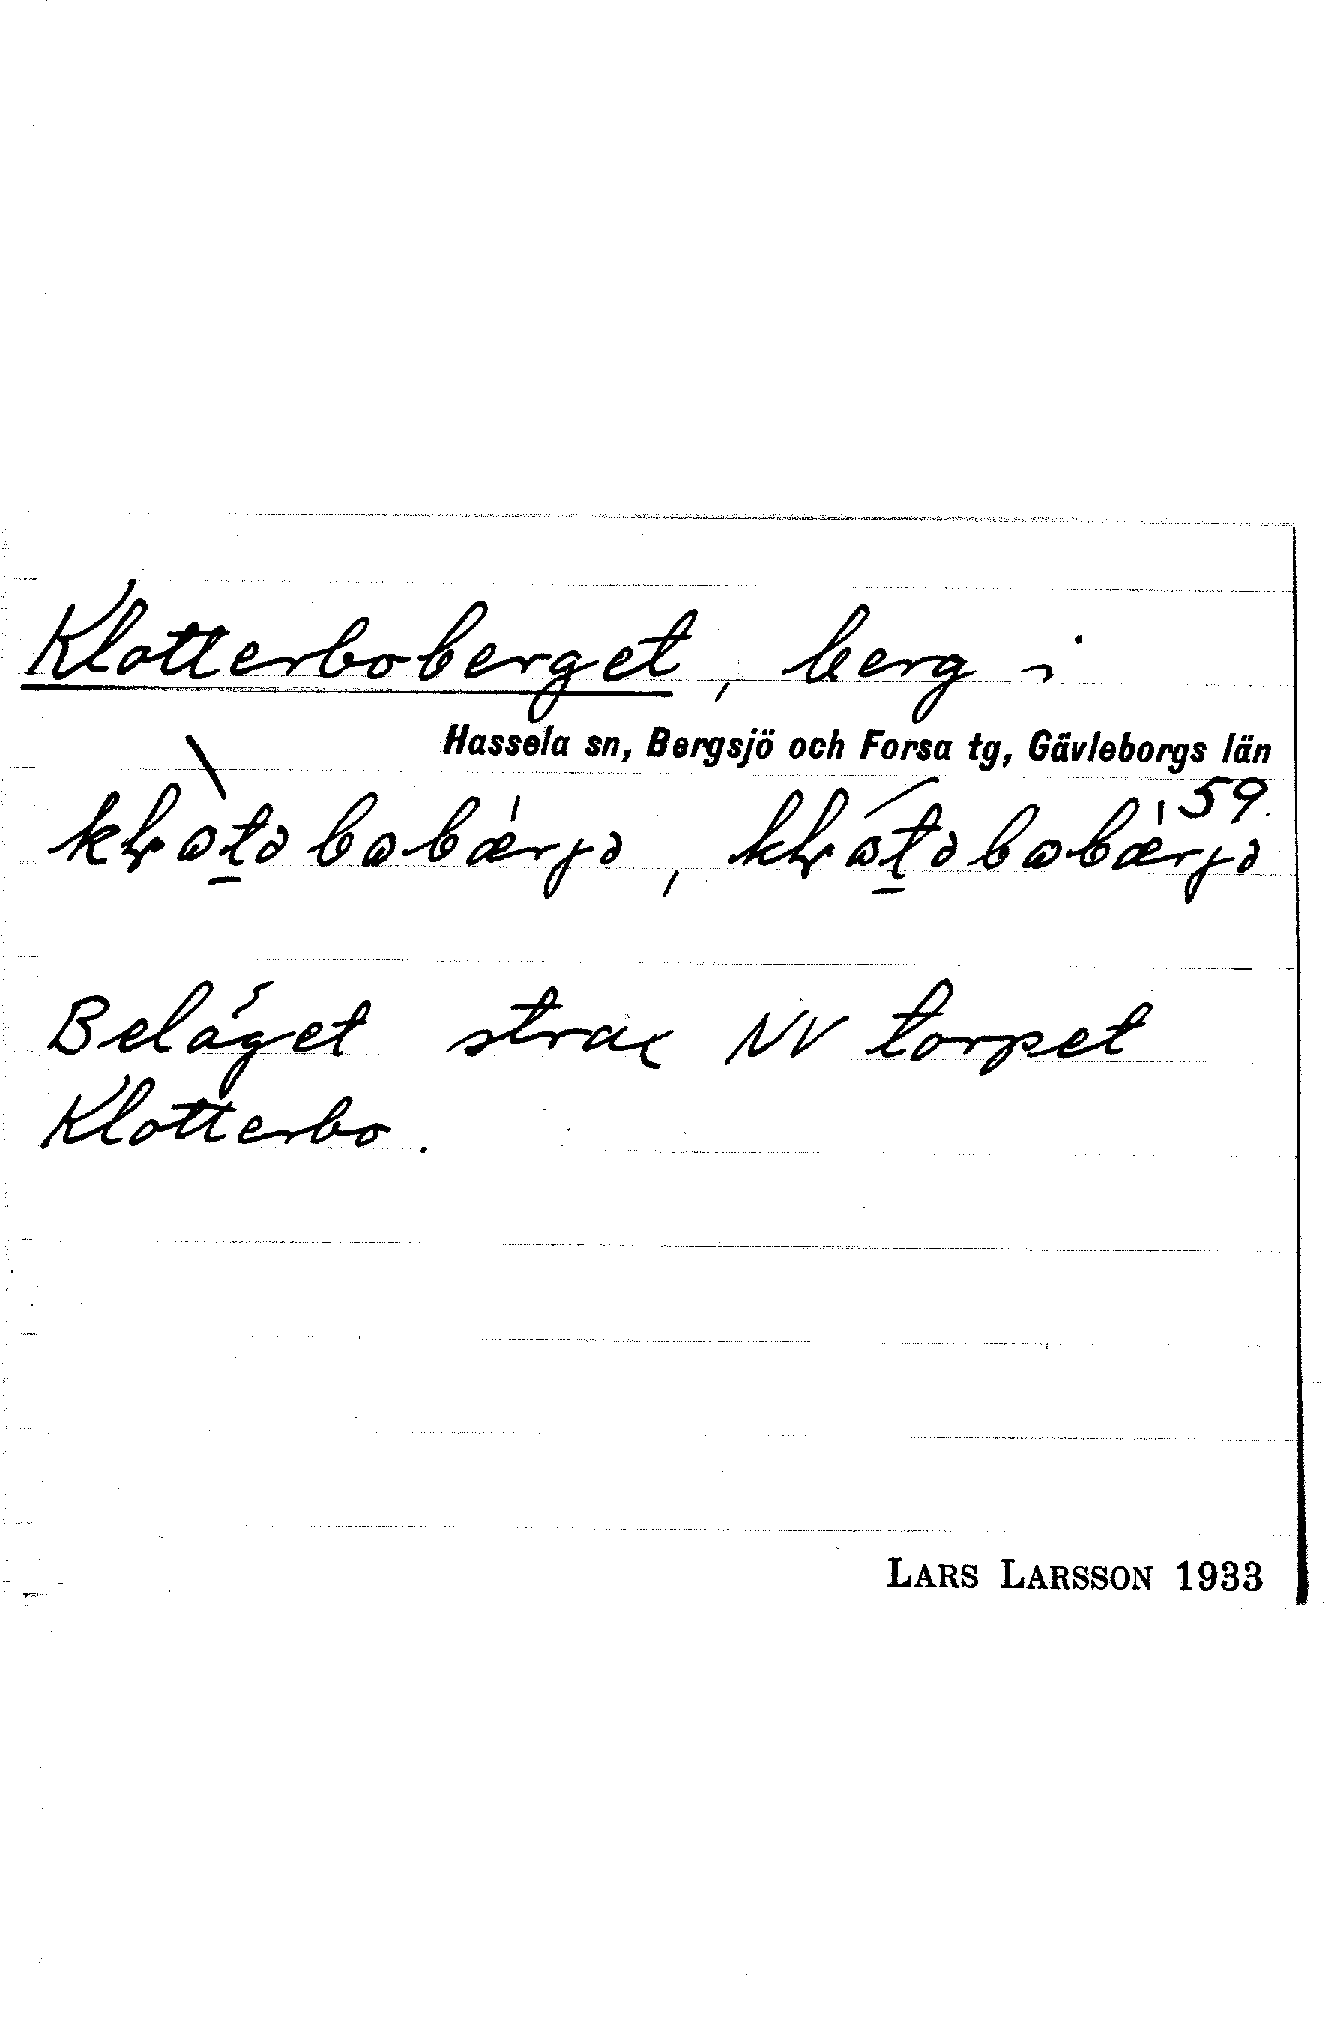 Klotterboberget, berg i
Hassela sn, Bergsjö och Forsa tg, Gävleborgs län
59.
Beläget strax NV torpet
Klotterbo.
LARS LARSSON 1933